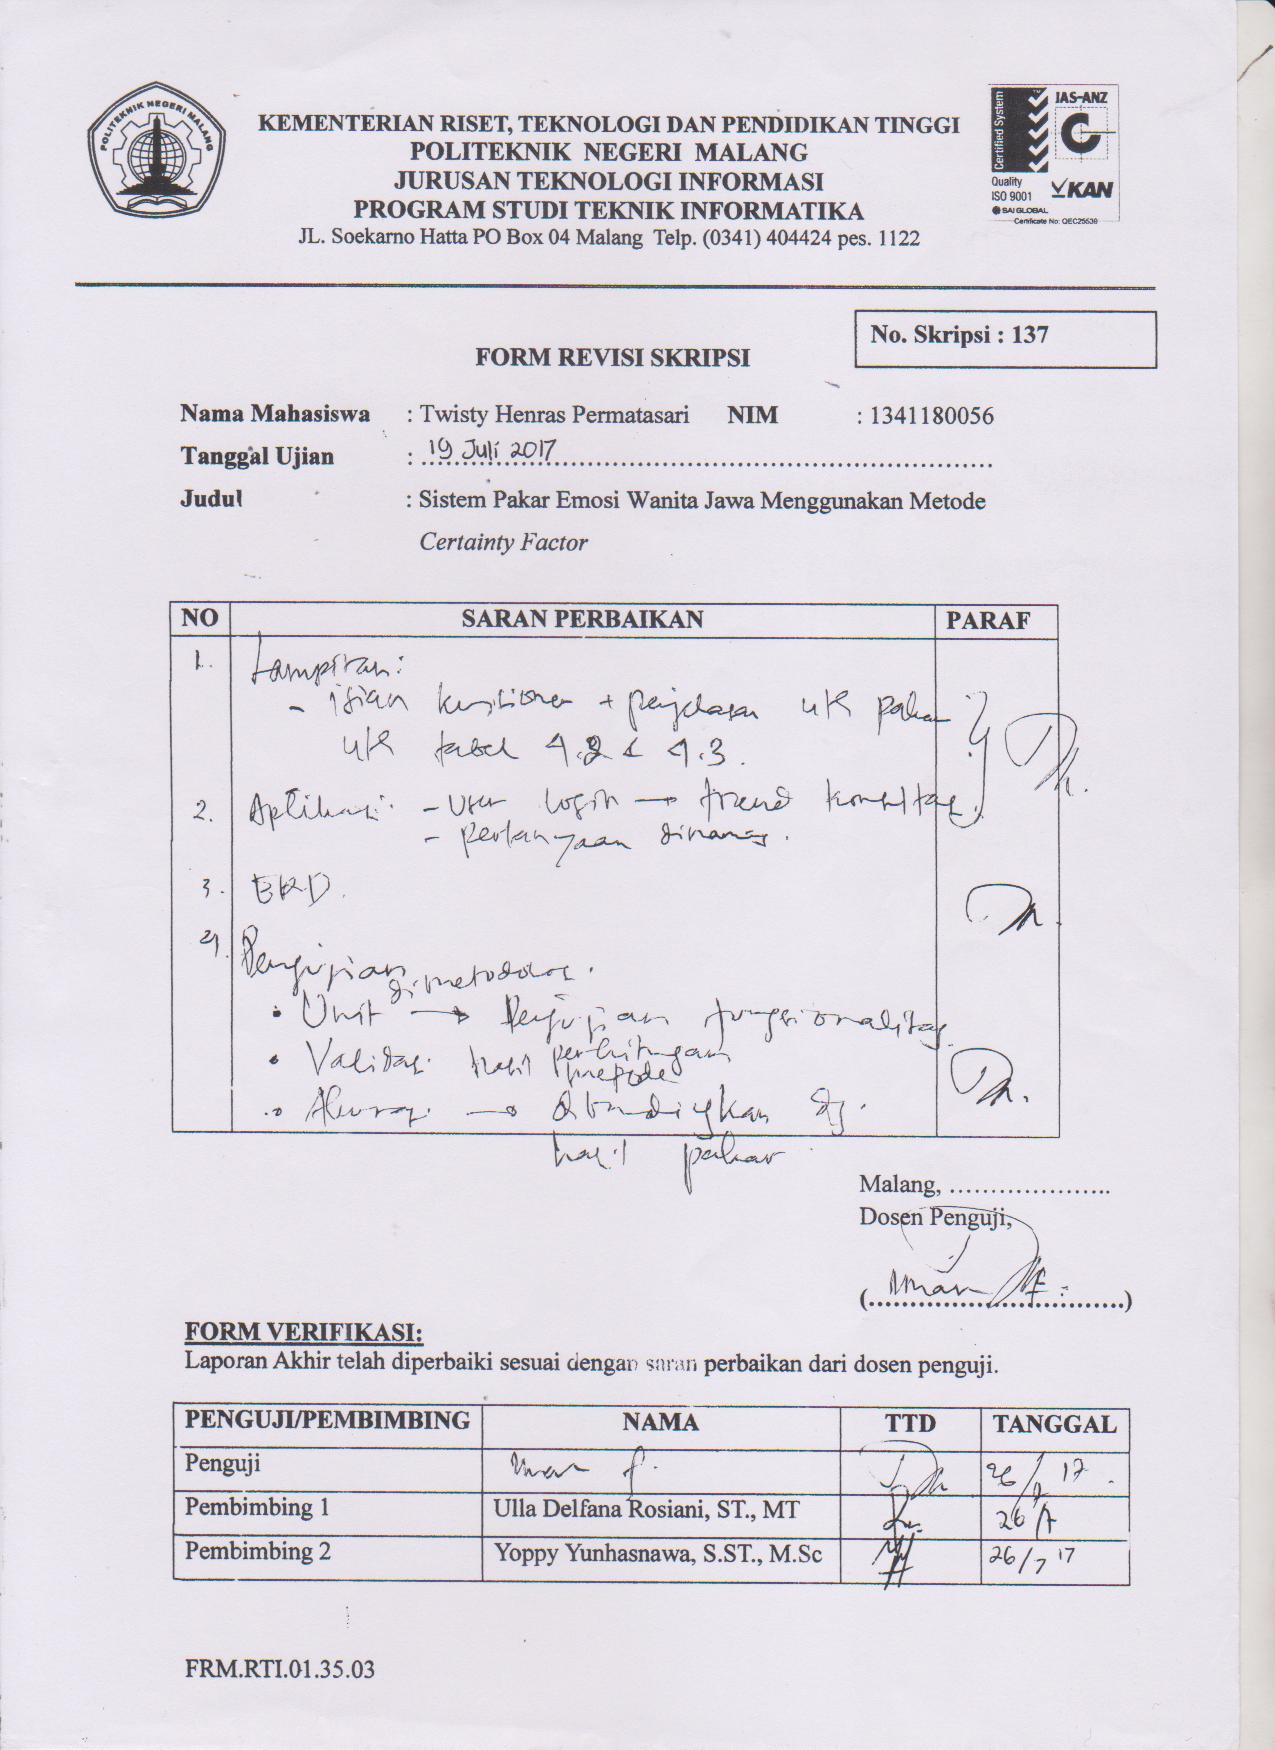 POLITEKNIK NEGERI MALANG
KEMENTERIAN RISET, TEKNOLOGI DAN PENDIDIKAN TINGGI
POLITEKNIK NEGERI MALANG
JURUSAN TEKNOLOGI INFORMASI
PROGRAM STUDI TEKNIK INFORMATIKA
JL. Soekarno Hatta PO Box 04 Malang Telp. (0341) 404424 pes. 1122
Certified System
JAS-ANZ
Quality
ISO 9001
KAN
SAI GLOBAL
Certificate No: QEC25639
No. Skripsi : 137
FORM REVISI SKRIPSI
Nama Mahasiswa : Twisty Henras Permatasari NIM : 1341180056
Tanggal Ujian : 19 Juli 2017
Judul : Sistem Pakar Emosi Wanita Jawa Menggunakan Metode
Certainty Factor
NO SARAN PERBAIKAN PARAF
1. Lampiran:
- isian kuisioner + penjelasan utk pakar
utk tabel 4.2 & 4.3.
2. Aplikasi: - User login → trend konsultasi
- pertanyaan dinamis.
3. ERD.
4. Pengujian
di metodolog.
• Unit → Pengujian fungsionalitas.
• Validasi hasil perhitungan
metode
• Akurasi → dibandingkan dg.
hasil pakar
Malang, ....................
Dosen Penguji,
(...............................)
FORM VERIFIKASI:
Laporan Akhir telah diperbaiki sesuai dengan saran perbaikan dari dosen penguji.
PENGUJI/PEMBIMBING NAMA TTD TANGGAL
Penguji 26/7 17.
Pembimbing 1 Ulla Delfana Rosiani, ST., MT 26/7
Pembimbing 2 Yoppy Yunhasnawa, S.ST., M.Sc 26/7 17
FRM.RTI.01.35.03